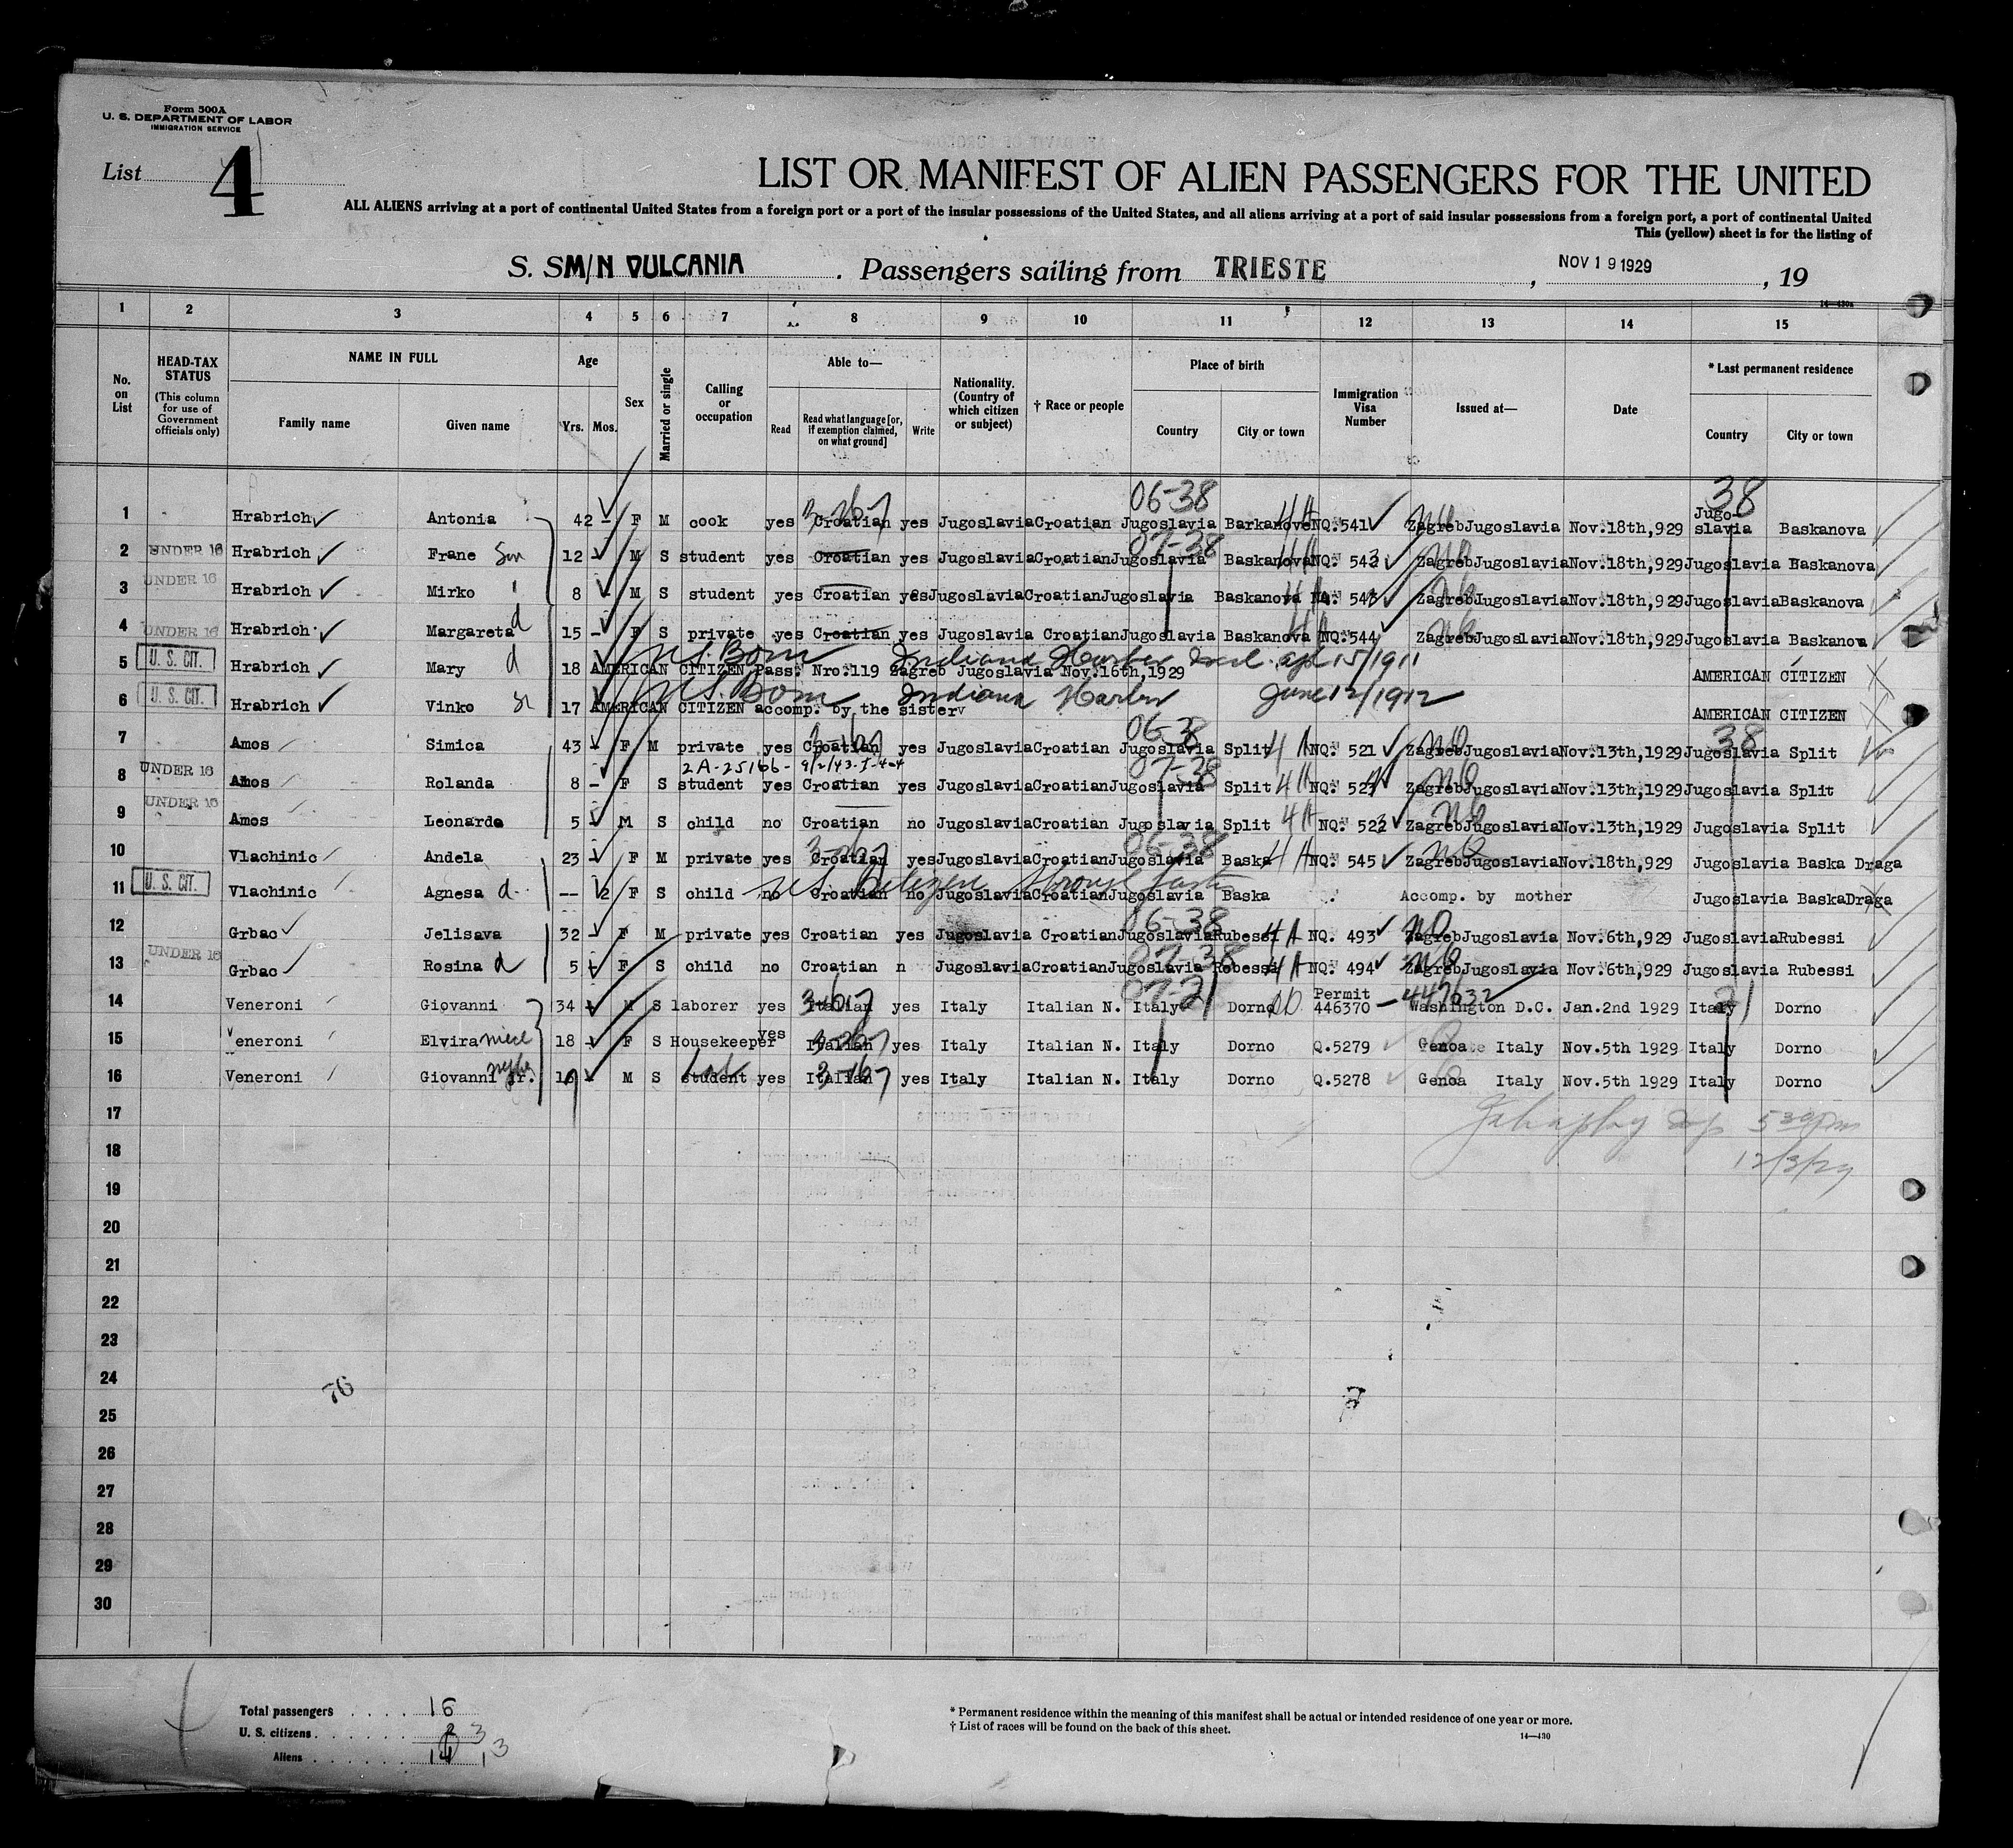 Form 500A
U. S. DEPARTMENT OF LABOR
IMMIGRATION SERVICE
List 4
LIST OR MANIFEST OF ALIEN PASSENGERS FOR THE UNITED
ALL ALIENS arriving at a port of continental United States from a foreign port or a port of the insular possessions of the United States, and all aliens arriving at a port of said insular possessions from a foreign port, a port of continental United
This (yellow) sheet is for the listing of
S. S. M/N VULCANIA. Passengers sailing from TRIESTE, NOV 19 1929, 19
14—430a
1 2 3 4 5 6 7 8 9 10 11 12 13 14 15
No. on List
HEAD-TAX STATUS
(This column for use of Government officials only)
NAME IN FULL
Family name Given name
Age
Yrs. Mos.
Sex
Married or single
Calling or occupation
Able to—
Read Read what language [or, if exemption claimed, on what ground] Write
Nationality. (Country of which citizen or subject)
† Race or people
Place of birth
Country City or town
Immigration Visa Number
Issued at—
Date
* Last permanent residence
Country City or town
06-38 38
1 Hrabrich Antonia 42 - F M cook yes Croatian yes Jugoslavia Croatian Jugoslavia Barkanove 4A NQ.541 Zagreb Jugoslavia Nov.18th,929 Jugo-slavia Baskanova
07-38
2 UNDER 16 Hrabrich Frane Son 12 - M S student yes Croatian yes Jugoslavia Croatian Jugoslavia Baskanova 4A NQ. 542 Zagreb Jugoslavia Nov.18th,929 Jugoslavia Baskanova
3 UNDER 16 Hrabrich Mirko 8 - M S student yes Croatian yes Jugoslavia Croatian Jugoslavia Baskanova 4A NQ. 543 Zagreb Jugoslavia Nov.18th,929 Jugoslavia Baskanova
4 UNDER 16 Hrabrich Margareta d 15 - F S private yes Croatian yes Jugoslavia Croatian Jugoslavia Baskanova 4A NQ.544 Zagreb Jugoslavia Nov.18th,929 Jugoslavia Baskanova
U.S. Born Indiana Harbor Ind. apl 15/1911
5 U. S. CIT. Hrabrich Mary d 18 AMERICAN CITIZEN Pass. Nro.119 Zagreb Jugoslavia Nov.16th,1929 AMERICAN CITIZEN
U.S. Born Indiana Harbor June 12/1912
6 U. S. CIT. Hrabrich Vinko 17 AMERICAN CITIZEN accomp. by the sister AMERICAN CITIZEN
06-38 38
7 Amos Simica 43 - F M private yes Croatian yes Jugoslavia Croatian Jugoslavia Split 4A NQ. 521 Zagreb Jugoslavia Nov.13th,1929 Jugoslavia Split
2A-25166- 9/2/43 07-38
8 UNDER 16 Amos Rolanda 8 - F S student yes Croatian yes Jugoslavia Croatian Jugoslavia Split 4A NQ. 522 Zagreb Jugoslavia Nov.13th,1929 Jugoslavia Split
9 UNDER 16 Amos Leonardo 5 M S child no Croatian no Jugoslavia Croatian Jugoslavia Split 4A NQ. 523 Zagreb Jugoslavia Nov.13th,1929 Jugoslavia Split
3-267 06-38
10 Vlachinic Andela 23 - F M private yes Croatian yes Jugoslavia Croatian Jugoslavia Baska 4A NQ. 545 Zagreb Jugoslavia Nov.18th,929 Jugoslavia Baska Draga
US Citizen through father
11 U. S. CIT. Vlachinic Agnesa d -- 2 F S child no Croatian no Jugoslavia Croatian Jugoslavia Baska Accomp. by mother Jugoslavia Baska Draga
06-38
12 Grbac Jelisava 32 - F M private yes Croatian yes Jugoslavia Croatian Jugoslavia Rubessi 4A NQ. 493 Zagreb Jugoslavia Nov.6th,929 Jugoslavia Rubessi
07-38
13 UNDER 16 Grbac Rosina d 5 F S child no Croatian n Jugoslavia Croatian Jugoslavia Robessi 4A NQ. 494 Zagreb Jugoslavia Nov.6th,929 Jugoslavia Rubessi
07-21 447632
14 Veneroni Giovanni 34 - M S laborer yes Italian yes Italy Italian N. Italy Dorno Permit 446370 Washington D.C. Jan.2nd 1929 Italy Dorno
15 Veneroni Elvira niece 18 - F S Housekeeper yes Italian yes Italy Italian N. Italy Dorno Q.5279 Genoa Italy Nov.5th 1929 Italy Dorno
16 Veneroni Giovanni jr. 16 - M S student yes Italian yes Italy Italian N. Italy Dorno Q.5278 Genoa Italy Nov.5th 1929 Italy Dorno
17
18 12/3/29
19
20
21
22
23
24
76
25
26
27
28
29
30
Total passengers 16
U. S. citizens 3
Aliens 14 13
* Permanent residence within the meaning of this manifest shall be actual or intended residence of one year or more.
† List of races will be found on the back of this sheet.
14—430